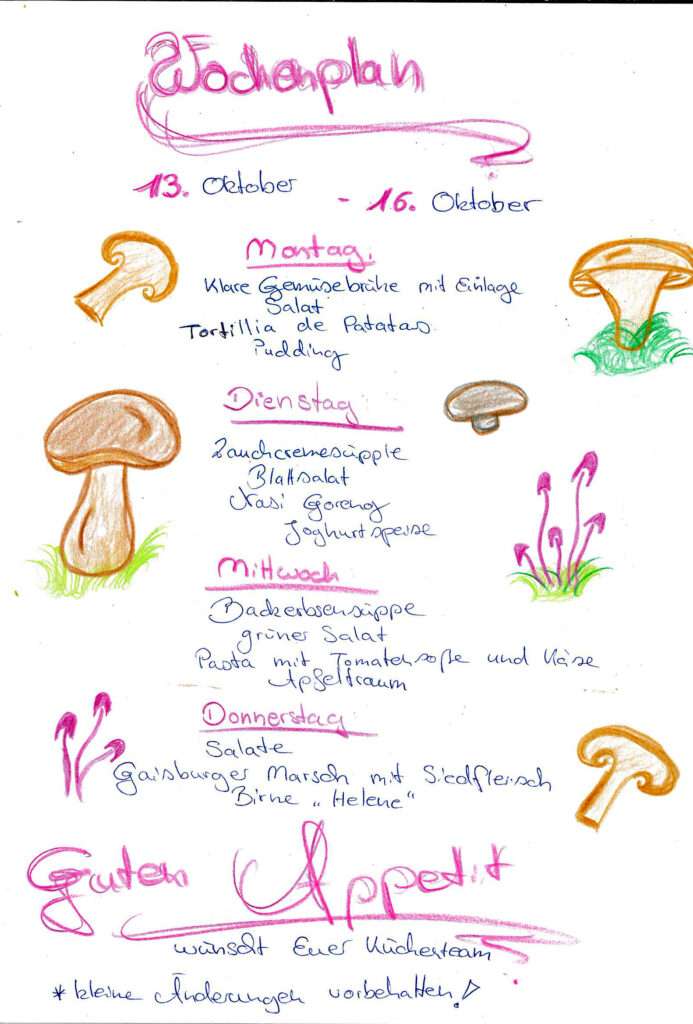 Wochenplan
13. Oktober - 16. Oktober
Montag
Klare Gemüsebrühe mit Einlage
Salat
Tortillia de Patatas
Pudding
Dienstag
Lauchcremesüpple
Blattsalat
Nasi Goreng
Joghurtspeise
Mittwoch
Backerbsensüppe
grüner Salat
Pasta mit Tomatensoße und Käse
Apfeltraum
Donnerstag
Salate
Gaisburger Marsch mit Siedfleisch
Birne „Helene“
Guten Appetit
wünscht Euer Küchenteam
* kleine Änderungen vorbehalten!